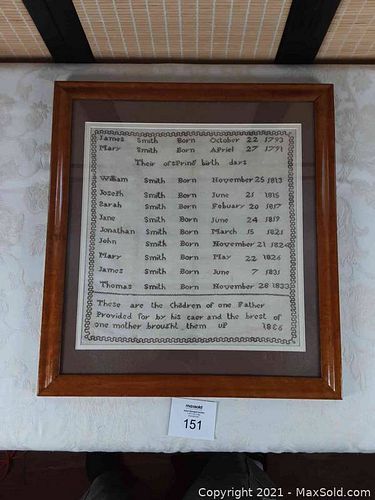 James Smith Born October 22 1793
Mary Smith Born Apriel 27 1791
Their ofspring birth days
William Smith Born November 25 1813
Joseph Smith Born June 21 1815
Sarah Smith Born Febuary 20 1817
Jane Smith Born June 24 1819
Jonathan Smith Born March 15 1821
John Smith Born November 21 1824
Mary Smith Born May 22 1826
James Smith Born June 7 1831
Thomas Smith Born November 28 1833
These are the Children of one Father
Provided for by his caer and the brest of
one mother brought them up 1836
maxsold
151
Copyright © 2021 - MaxSold.com